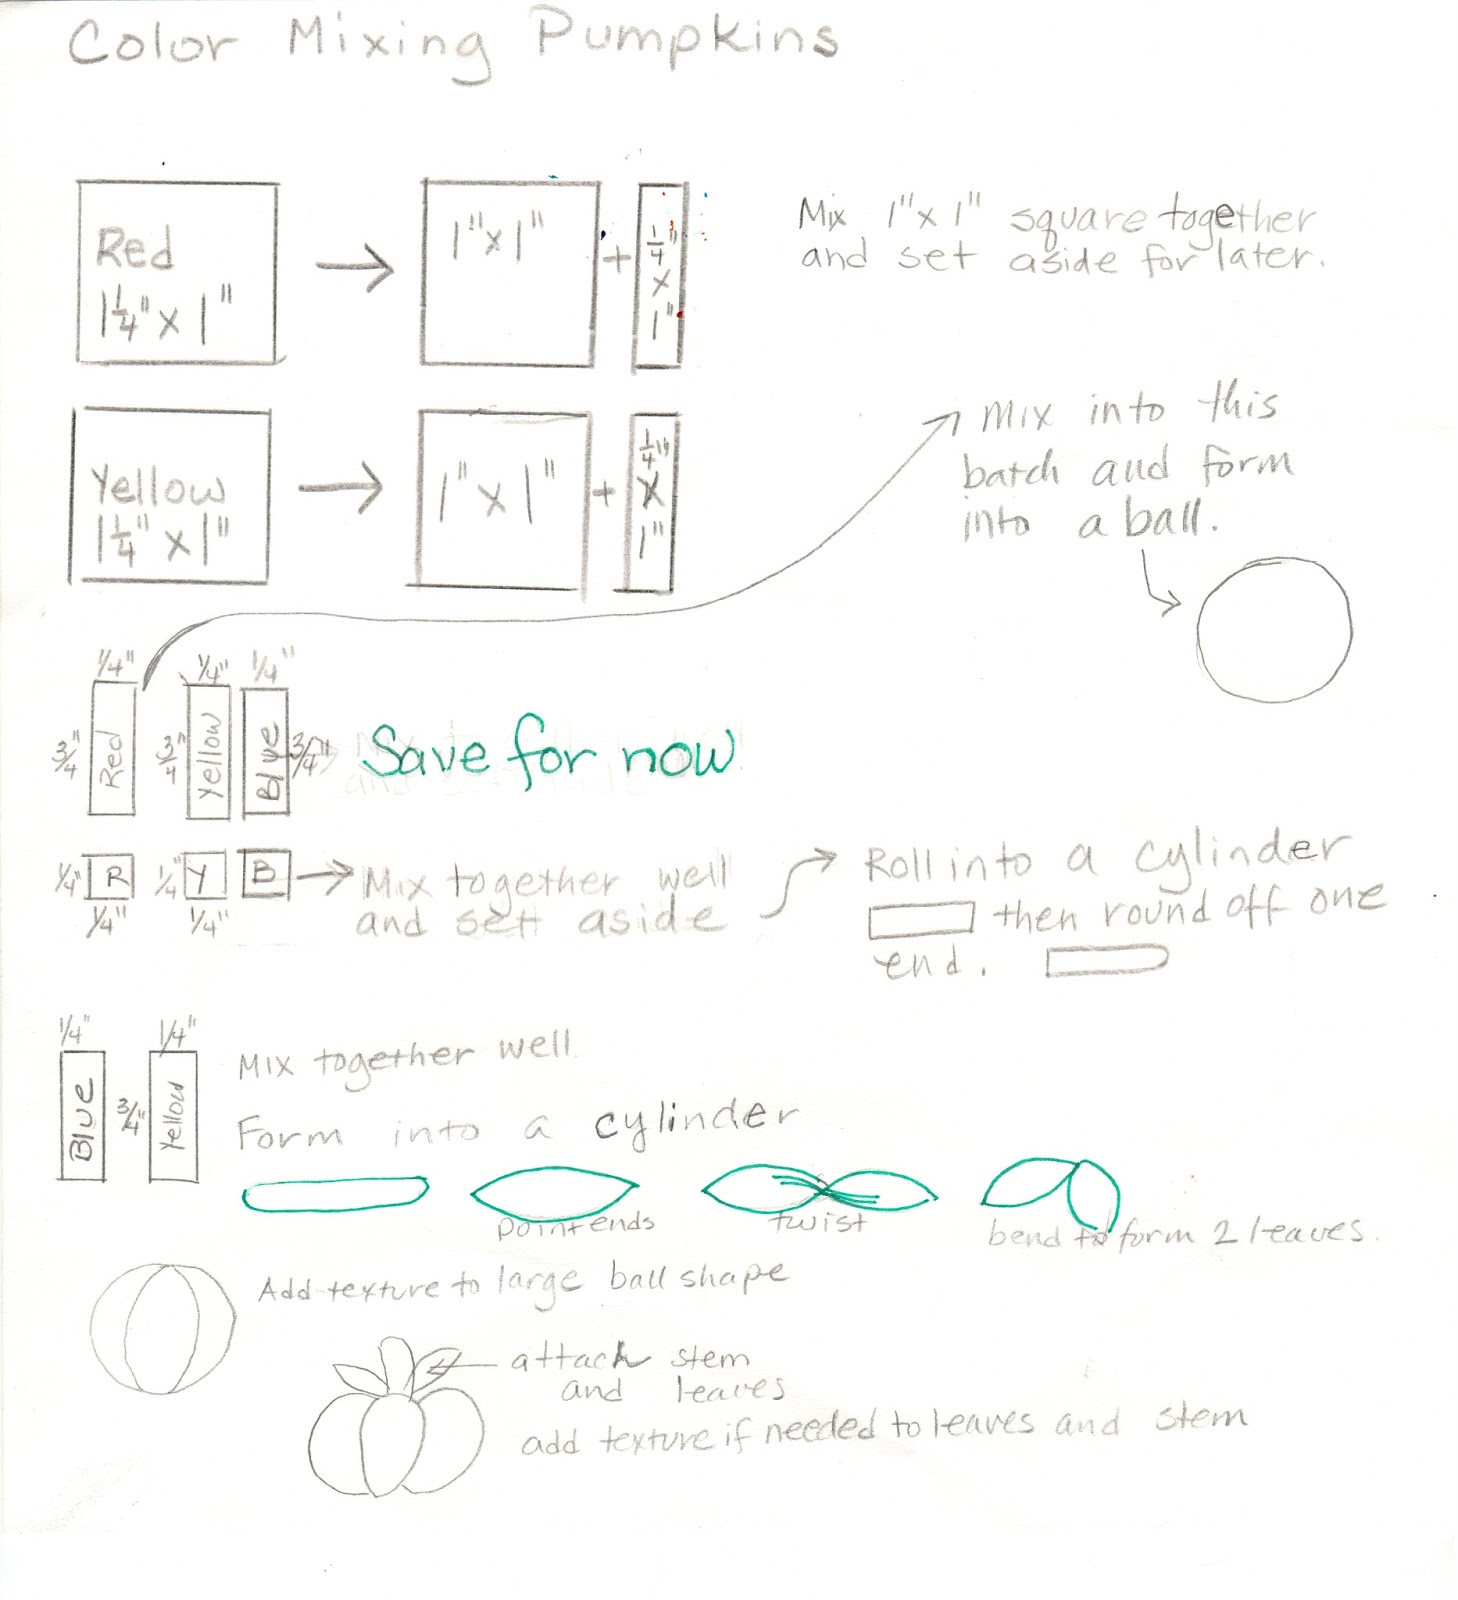 Color Mixing Pumpkins
Red
1 1/4" x 1"
1" x 1"
+
1/4"
x
1"
Mix 1" x 1" square together
and set aside for later.
Yellow
1 1/4" x 1"
1" x 1"
+
1/4"
x
1"
Mix into this
batch and form
into a ball.
1/4"
1/4"
1/4"
3/4"
Red
3/4"
Yellow
Blue
3/4"
Save for now
1/4"
R
1/4"
Y
B
1/4"
1/4"
Mix together well
and set aside
Roll into a cylinder
then round off one
end.
1/4"
1/4"
Blue
3/4"
Yellow
Mix together well
Form into a cylinder
point ends
twist
bend to form 2 leaves.
Add texture to large ball shape
attach stem
and leaves
add texture if needed to leaves and stem